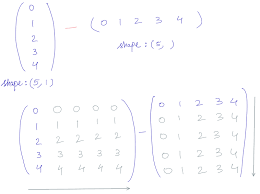 ( 0 1 2 3 4 ) - ( 0 1 2 3 4 )
shape : (5, 1)
shape : (5, )
( 0 0 0 0 0 0 ) - ( 0 1 2 3 4 )
1 1 1 1 1 0 1 2 3 4
2 2 2 2 2 0 1 2 3 4
3 3 3 3 3 0 1 2 3 4
4 4 4 4 4 0 1 2 3 4